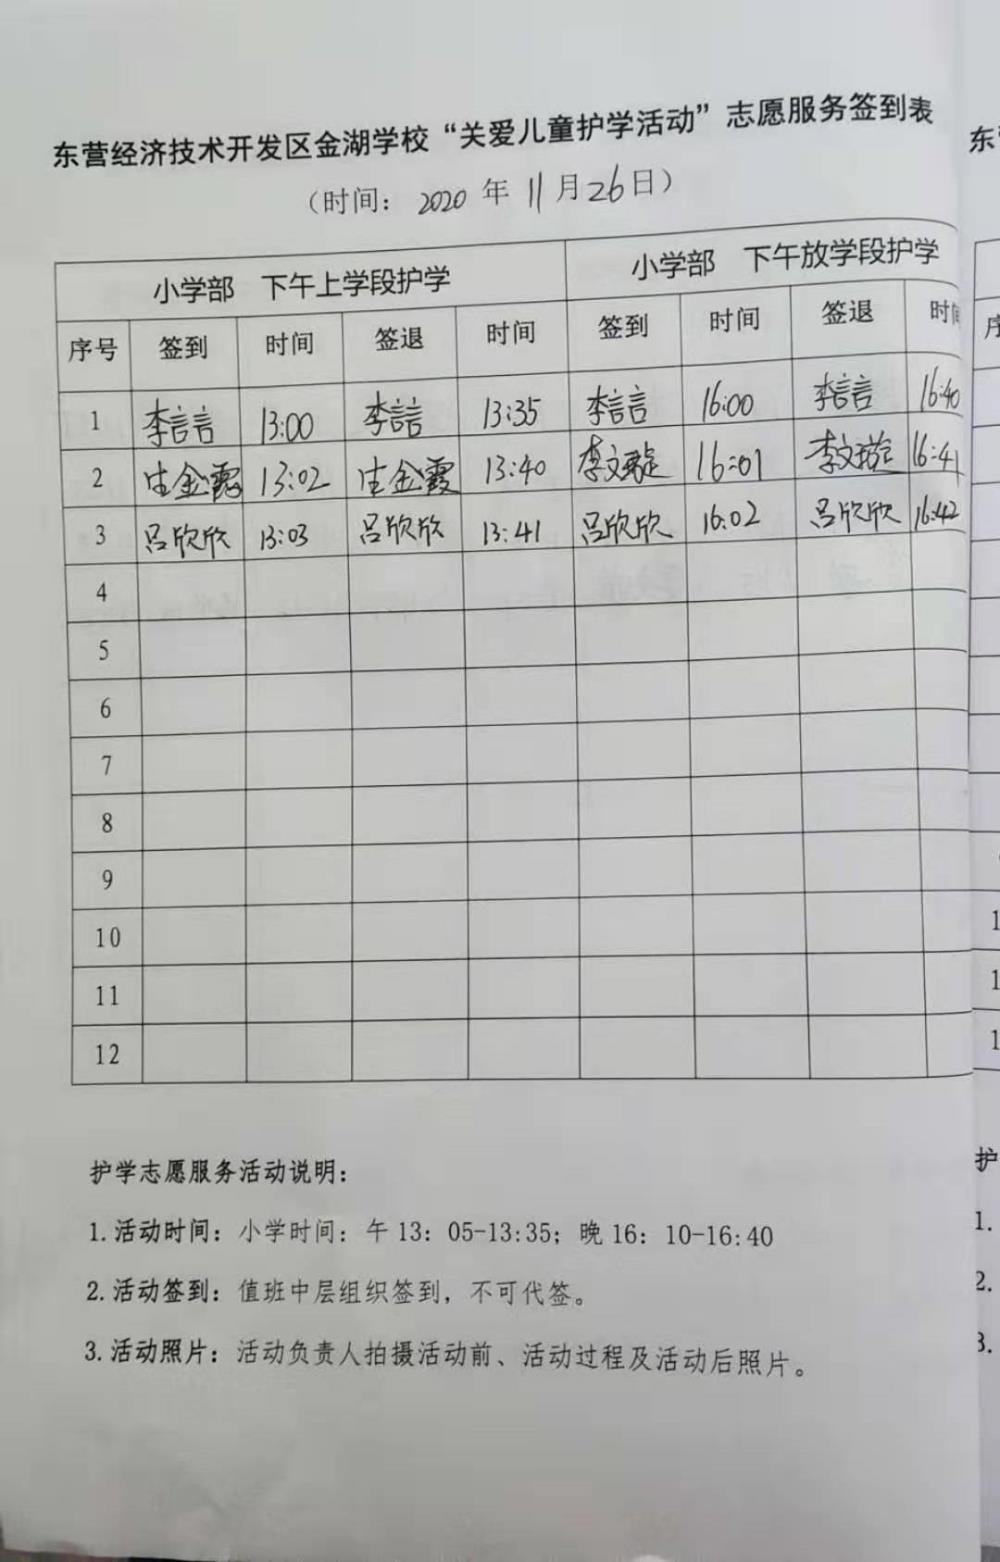 东营经济技术开发区金湖学校“关爱儿童护学活动”志愿服务签到表
（时间：2020年11月26日）
小学部 下午上学段护学 小学部 下午放学段护学
序号 签到 时间 签退 时间 签到 时间 签退 时间
1 李言言 13:00 李言言 13:35 李言言 16:00 李言言 16:40
2 生金霞 13:02 生金霞 13:40 李文璇 16:01 李文璇 16:41
3 吕欣欣 13:03 吕欣欣 13:41 吕欣欣 16:02 吕欣欣 16:42
4
5
6
7
8
9
10
11
12
护学志愿服务活动说明：
1.活动时间：小学时间：午13：05-13:35；晚16：10-16:40
2.活动签到：值班中层组织签到，不可代签。
3.活动照片：活动负责人拍摄活动前、活动过程及活动后照片。
东
序
1
1
1
护
1.
2.
3.